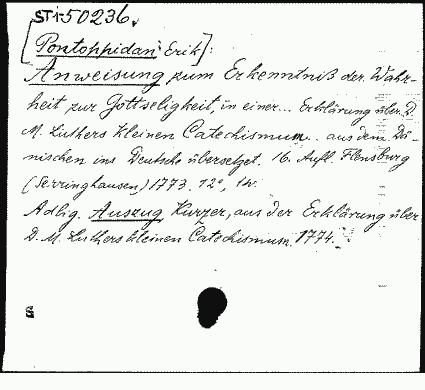 St 1-50236.
[Pontoppidan, Erik]:
Anweisung zum Erkenntniß der Wahr-
heit zur Gottseligkeit, in einer... Erklärung über D.
M. Luthers kleinen Catechismum.. aus dem Dä-
nischen ins Deutsche übersetzet. 16. Aufl. Flensburg
(Serringhausen) 1773. 12°,
Adlig. Auszug, Kurzer, aus der Erklärung über
D. M. Luthers kleinen Catechismum. 1774.